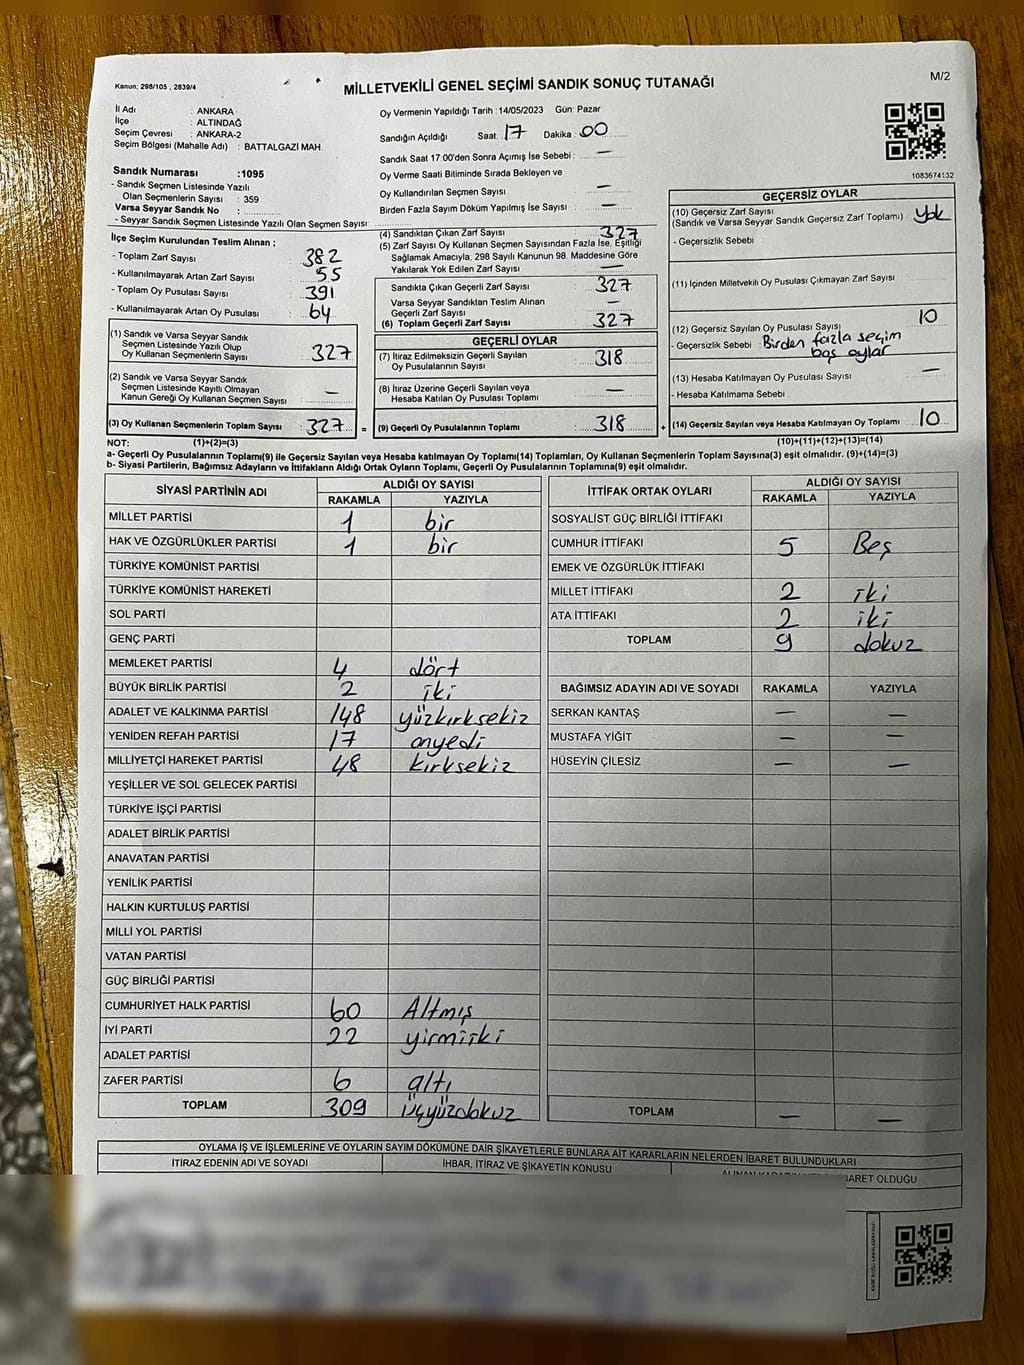 Kanun: 298/105 , 2839/4
MİLLETVEKİLİ GENEL SEÇİMİ SANDIK SONUÇ TUTANAĞI
M/2
İl Adı : ANKARA
İlçe : ALTINDAĞ
Seçim Çevresi : ANKARA-2
Seçim Bölgesi (Mahalle Adı) : BATTALGAZİ MAH.
Sandık Numarası :1095
- Sandık Seçmen Listesinde Yazılı
Olan Seçmenlerin Sayısı : 359
Varsa Seyyar Sandık No :
- Seyyar Sandık Seçmen Listesinde Yazılı Olan Seçmen Sayısı
Oy Vermenin Yapıldığı Tarih :14/05/2023 Gün: Pazar
Sandığın Açıldığı Saat: 17 Dakika: 00
Sandık Saat 17:00'den Sonra Açımış İse Sebebi : —
Oy Verme Saati Bitiminde Sırada Bekleyen ve
Oy Kullandırılan Seçmen Sayısı —
Birden Fazla Sayım Döküm Yapılmış İse Sayısı : —
1083674132
İlçe Seçim Kurulundan Teslim Alınan ;
- Toplam Zarf Sayısı : 382
- Kullanılmayarak Artan Zarf Sayısı : 55
- Toplam Oy Pusulası Sayısı : 391
- Kullanılmayarak Artan Oy Pusulası : 64
(1) Sandık ve Varsa Seyyar Sandık
Seçmen Listesinde Yazılı Olup
Oy Kullanan Seçmenlerin Sayısı : 327
(2) Sandık ve Varsa Seyyar Sandık
Seçmen Listesinde Kayıtlı Olmayan
Kanun Gereği Oy Kullanan Seçmen Sayısı : —
(3) Oy Kullanan Seçmenlerin Toplam Sayısı : 327 =
(4) Sandıktan Çıkan Zarf Sayısı : 327
(5) Zarf Sayısı Oy Kullanan Seçmen Sayısından Fazla İse, Eşitliği
Sağlamak Amacıyla, 298 Sayılı Kanunun 98. Maddesine Göre
Yakılarak Yok Edilen Zarf Sayısı : —
Sandıkta Çıkan Geçerli Zarf Sayısı : 327
Varsa Seyyar Sandıktan Teslim Alınan
Geçerli Zarf Sayısı : —
(6) Toplam Geçerli Zarf Sayısı : 327
GEÇERLİ OYLAR
(7) İtiraz Edilmeksizin Geçerli Sayılan
Oy Pusulalarının Sayısı : 318
(8) İtiraz Üzerine Geçerli Sayılan veya
Hesaba Katılan Oy Pusulası Toplamı : —
(9) Geçerli Oy Pusulalarının Toplamı : 318 +
GEÇERSİZ OYLAR
(10) Geçersiz Zarf Sayısı
(Sandık ve Varsa Seyyar Sandık Geçersiz Zarf Toplamı) : yok
- Geçersizlik Sebebi
(11) İçinden Milletvekili Oy Pusulası Çıkmayan Zarf Sayısı
(12) Geçersiz Sayılan Oy Pusulası Sayısı : 10
- Geçersizlik Sebebi : Birden fazla seçim
boş oylar
(13) Hesaba Katılmayan Oy Pusulası Sayısı : —
- Hesaba Katılmama Sebebi
(14) Geçersiz Sayılan veya Hesaba Katılmayan Oy Toplamı : 10
NOT: (1)+(2)=(3) (10)+(11)+(12)+(13)=(14)
a- Geçerli Oy Pusulalarının Toplamı(9) ile Geçersiz Sayılan veya Hesaba Katılmayan Oy Toplamı(14) Toplamları, Oy Kullanan Seçmenlerin Toplam Sayısına(3) eşit olmalıdır. (9)+(14)=(3)
b- Siyasi Partilerin, Bağımsız Adayların ve İttifakların Aldığı Ortak Oyların Toplamı, Geçerli Oy Pusulalarının Toplamına(9) eşit olmalıdır.
SİYASİ PARTİNİN ADI ALDIĞI OY SAYISI
RAKAMLA YAZIYLA
MİLLET PARTİSİ 1 bir
HAK VE ÖZGÜRLÜKLER PARTİSİ 1 bir
TÜRKİYE KOMÜNİST PARTİSİ
TÜRKİYE KOMÜNİST HAREKETİ
SOL PARTİ
GENÇ PARTİ
MEMLEKET PARTİSİ 4 dört
BÜYÜK BİRLİK PARTİSİ 2 iki
ADALET VE KALKINMA PARTİSİ 148 yüzkırksekiz
YENİDEN REFAH PARTİSİ 17 onyedi
MİLLİYETÇİ HAREKET PARTİSİ 48 kırksekiz
YEŞİLLER VE SOL GELECEK PARTİSİ
TÜRKİYE İŞÇİ PARTİSİ
ADALET BİRLİK PARTİSİ
ANAVATAN PARTİSİ
YENİLİK PARTİSİ
HALKIN KURTULUŞ PARTİSİ
MİLLİ YOL PARTİSİ
VATAN PARTİSİ
GÜÇ BİRLİĞİ PARTİSİ
CUMHURİYET HALK PARTİSİ 60 Altmış
İYİ PARTİ 22 yirmiiki
ADALET PARTİSİ
ZAFER PARTİSİ 6 altı
TOPLAM 309 üçyüzdokuz
İTTİFAK ORTAK OYLARI ALDIĞI OY SAYISI
RAKAMLA YAZIYLA
SOSYALİST GÜÇ BİRLİĞİ İTTİFAKI
CUMHUR İTTİFAKI 5 Beş
EMEK VE ÖZGÜRLÜK İTTİFAKI
MİLLET İTTİFAKI 2 iki
ATA İTTİFAKI 2 iki
TOPLAM 9 dokuz
BAĞIMSIZ ADAYIN ADI VE SOYADI RAKAMLA YAZIYLA
SERKAN KANTAŞ — —
MUSTAFA YİĞİT — —
HÜSEYİN ÇİLESİZ — —
TOPLAM — —
OYLAMA İŞ VE İŞLEMLERİNE VE OYLARIN SAYIM DÖKÜMÜNE DAİR ŞİKAYETLERLE BUNLARA AİT KARARLARIN NELERDEN İBARET BULUNDUKLARI
İTİRAZ EDENİN ADI VE SOYADI İHBAR, İTİRAZ VE ŞİKAYETİN KONUSU OLDUĞU